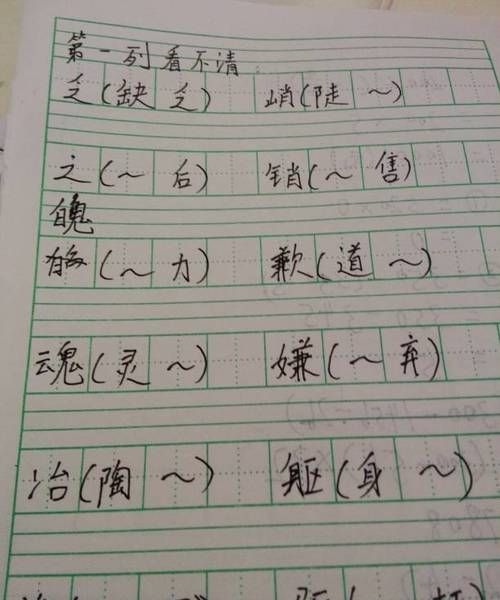 第一列看不清:
乏(缺乏) 峭(陡～)
之(～后) 销(～售)
魄
(～力) 歉(道～)
魂(灵～) 嫌(～弃)
冶(陶～) 躯(身～)